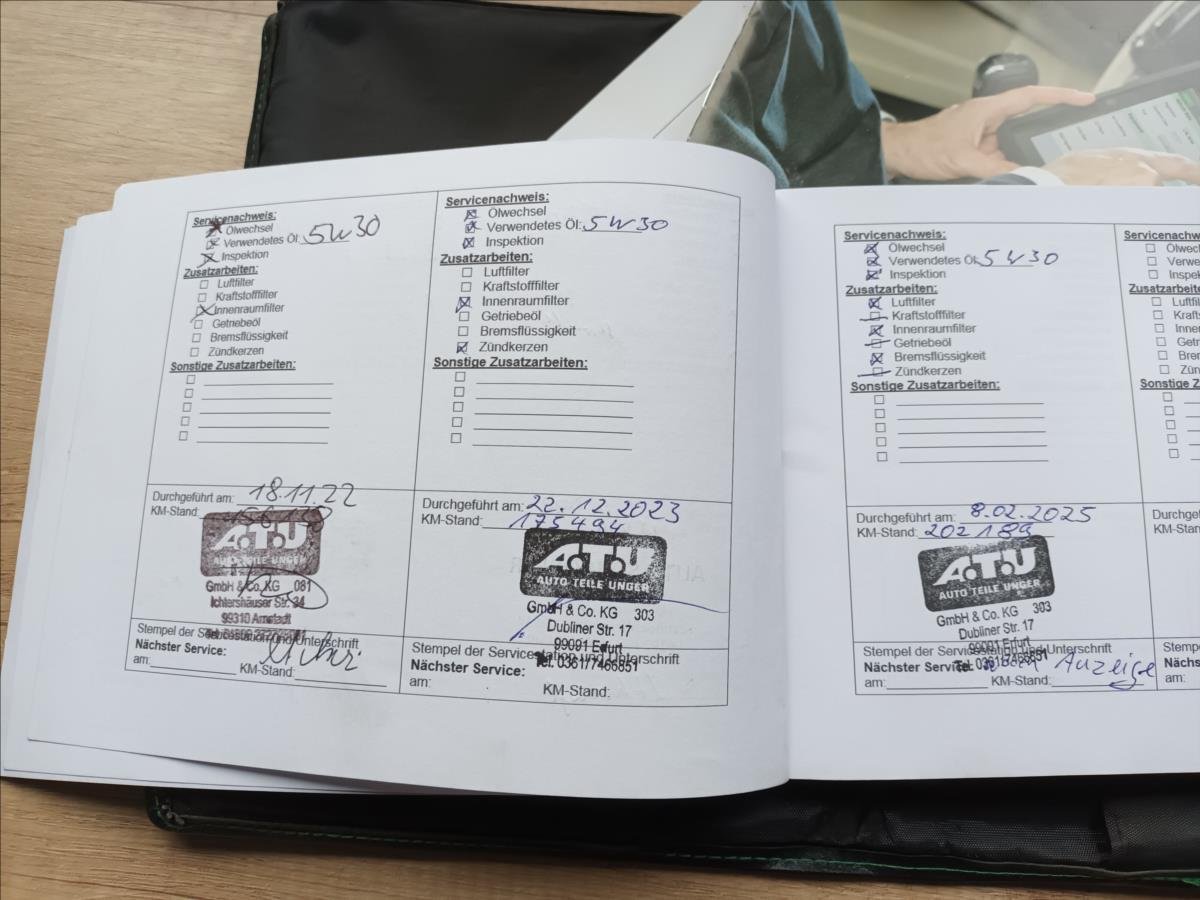 Servicenachweis:
Ölwechsel
Verwendetes Öl: 5W30
Inspektion
Zusatzarbeiten:
Luftfilter
Kraftstofffilter
Innenraumfilter
Getriebeöl
Bremsflüssigkeit
Zündkerzen
Sonstige Zusatzarbeiten:
Durchgeführt am: 18.11.22
KM-Stand:
A.T.U
AUTO TEILE UNGER
GmbH & Co. KG 081
Ichtershäuser Str. 34
99310 Arnstadt
Stempel der Servicestation und Unterschrift
Nächster Service:
am: KM-Stand:
Servicenachweis:
Ölwechsel
Verwendetes Öl: 5W30
Inspektion
Zusatzarbeiten:
Luftfilter
Kraftstofffilter
Innenraumfilter
Getriebeöl
Bremsflüssigkeit
Zündkerzen
Sonstige Zusatzarbeiten:
Durchgeführt am: 22.12.2023
KM-Stand: 175494
A.T.U
AUTO TEILE UNGER
GmbH & Co. KG 303
Dubliner Str. 17
99091 Erfurt
Stempel der Servicestation und Unterschrift
Tel. 0361/7466851
Nächster Service:
am: KM-Stand:
Servicenachweis:
Ölwechsel
Verwendetes Öl: 5W30
Inspektion
Zusatzarbeiten:
Luftfilter
Kraftstofffilter
Innenraumfilter
Getriebeöl
Bremsflüssigkeit
Zündkerzen
Sonstige Zusatzarbeiten:
Durchgeführt am: 8.02.2025
KM-Stand: 202189
A.T.U
AUTO TEILE UNGER
GmbH & Co. KG 303
Dubliner Str. 17
99091 Erfurt
Stempel der Servicestation und Unterschrift
Tel. 0361/7466851
Nächster Service: Anzeige
am: KM-Stand:
Servicenachweis:
Ölwechs
Verwe
Inspek
Zusatzarbeiten:
Luftfilt
Krafts
Innen
Getrie
Brem
Zünd
Sonstige Zusatz
Durchgeführt
KM-Stand:
Stempel
Nächster
am: